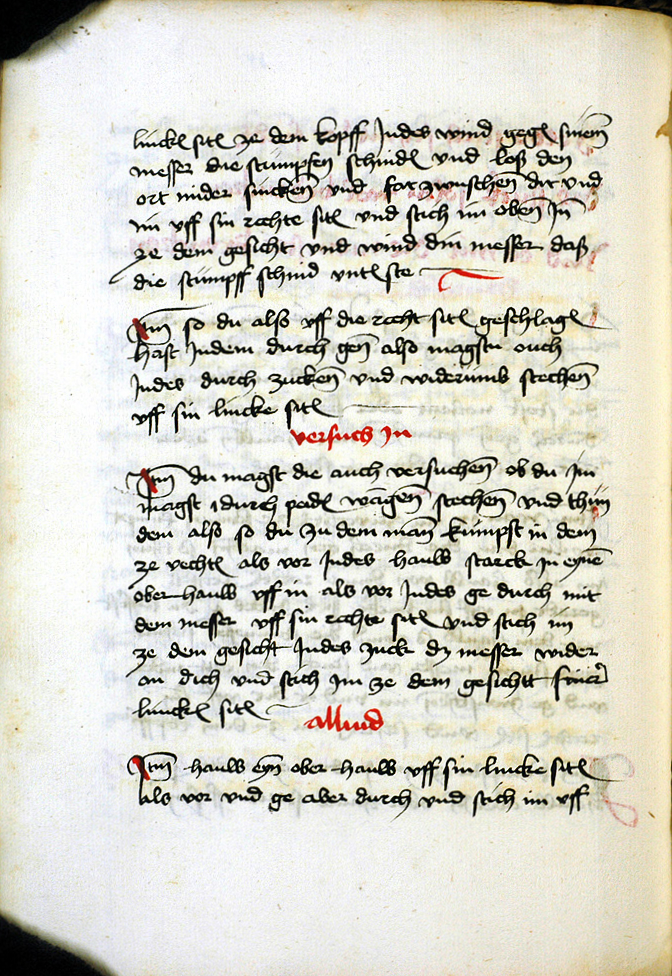 linck sit ze dem kopff Indes wind geg sinem
messer die stumpfen schnid und loß den
ort nider sincken und far zwuschen dir und
im uff sin rechte sit und stich im oben In
ze dem gesicht und wind din messer daß
die stumpff schnid unt ste
Itm so du also uff die recht sit geschlag
hast Indem durch gen also magstu ouch
Indes durch zucken und widerumb stechen
uff sin lincke sit
versuch In
Itm du magst die auch versuchen ob du Im
magst durch paid wagen stechen und thun
dem also so du zu dem man kumpst in dem
ze vecht als vor Indes hauw starck In eyne
ober hauw uff in als vor Indes ge durch mit
dem messer uff sin rechte sit und stich im
ze dem gesicht Indes zuck dy messer wider
an dich und stich Im ze dem gesichtt siner
linck sit
alluid
Itm hauw eyn ober hauw uff sin lincke sit
als vor und ge aber durch und stich im uff